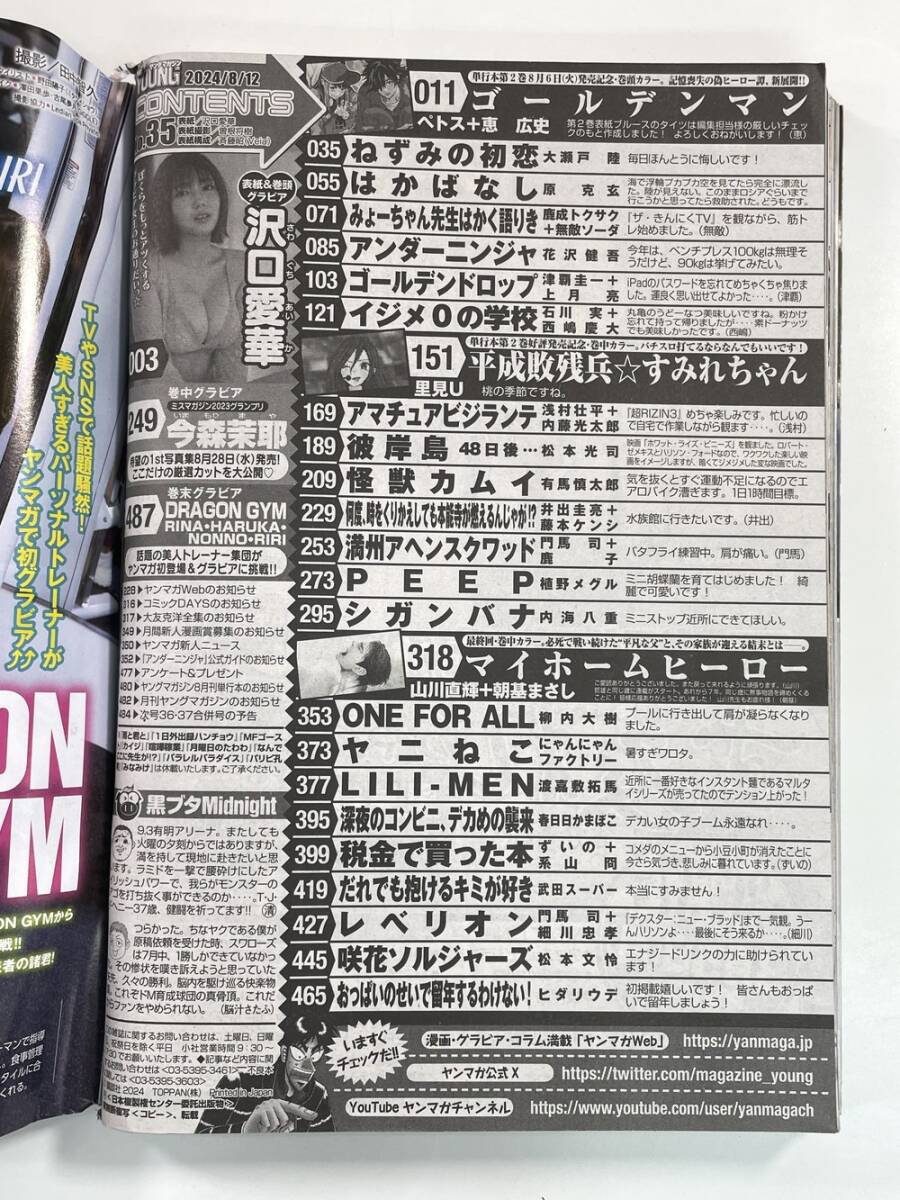 撮影／田中
TVやSNSで話題騒然！
美人すぎるパーソナルトレーナーが
ヤンマガで初グラビア⤴⤴
ON GYMから
YOUNG
2024/8/12
CONTENTS
35
表紙／沢口愛華
表紙撮影／曽根将樹
表紙＆巻頭
グラビア
沢口愛華
さわぐちあいか
003
巻中グラビア
ミスマガジン2023グランプリ
249
今森茉耶
いまもりまや
待望の1st写真集8月28日(水)発売！
ここだけの厳選カットを大公開♡
巻末グラビア
487
DRAGON GYM
RINA・HARUKA・
NONNO・RIRI
話題の美人トレーナー集団が
ヤンマガ初登場＆グラビアに挑戦!!
ヤンマガWebのお知らせ
コミックDAYSのお知らせ
大友克洋全集のお知らせ
月間新人漫画賞募集のお知らせ
ヤンマガ新人ニュース
「アンダーニンジャ」公式ガイドのお知らせ
アンケート＆プレゼント
ヤングマガジン8月刊単行本のお知らせ
月刊ヤンマガジンのお知らせ
次号36・37合併号の予告
「雨と君と」「1日外出録ハンチョウ」「MFゴースト」
「カイジ」「喧嘩稼業」「月曜日のたわわ」「なんで
ここに先生が!?」「パラレルパラダイス」「パリピ孔
明」「みなみけ」は休載いたします。ご了承ください。
黒ブタMidnight
9.3有明アリーナ。またしても
火曜の夕刻ではありますが、
満を持して現地に赴きたいと思
ラミドを一撃で腰砕けにしたア
リッシュパワーで、我らがモンスターの
ゴを打ち抜く事ができるのか‥‥。T・J・
ヘニー37歳、健闘を祈ってます!!（漬）
つらかった。ちなヤクである僕が
原稿依頼を受けた時、スワローズ
は7月中、1勝しかできていなかっ
その惨状を嘆き訴えようと思っていた
矢先、久々の勝利。脳内を駆け巡る快楽物
質。これぞドM育成球団の真骨頂。これだ
らファンをやめられない。（脳汁さたふ）
の雑誌に関するお問い合わせは、土曜日、日曜
祝祭日を除く平日 小社営業時間9：30〜
お願いいたします。◆記事など内容に関
するお問い合わせは〈03-5395-3461〉 不良本
ては〈03-5395-3603〉
2024 TOPPAN(株) Printed in Japan
〈日本複製権センター委託出版物〉
複写〈コピー〉、転載
単行本第2巻8月6日(火)発売記念・巻頭カラー。記憶喪失の偽ヒーロー譚、新展開!!
011 ゴールデンマン
ペトス＋恵 広史
第2巻表紙ブルースのタイツは編集担当様の厳しいチェッ
クのもと作成しました！ よろしくおねがいします！（恵）
035 ねずみの初恋 大瀬戸 陸 毎日ほんとうに悔しいです！
055 はかばなし 原 克玄 海で浮輪プカプカ空を見てたら完全に漂流し
た。陸が見えない。このままロシアぐらいまで
行こうかと思ってたら救助された。どうもです。
071 みょーちゃん先生はかく語りき 鹿成トクサク＋無敵ソーダ 『ザ・きんにくTV』を観ながら、筋ト
レ始めました。（無敵）
085 アンダーニンジャ 花沢健吾 今年は、ベンチプレス100kgは無理そ
うだけど、90kgは挙げてみたい。
103 ゴールデンドロップ 津覇圭一＋上月亮 iPadのパスワードを忘れてめちゃくちゃ焦りま
した。運良く思い出せてよかった‥‥。（津覇）
121 イジメ0の学校 石川 実＋西嶋慶太 丸亀のうどーなつ美味しいですね。粉かけ
忘れて持って帰りましたが‥‥素ドーナッツ
でも美味しかったです。（西嶋）
単行本第2巻好評発売記念・巻中カラー。パチスロ打てるならなんでもいいです！
151 平成敗残兵☆すみれちゃん
里見U 桃の季節ですね。
169 アマチュアビジランテ 浅村壮平＋内藤光太郎 『超RIZIN3』めちゃ楽しみです。忙しいの
で自宅で作業しながら観ます‥‥。（浅村）
189 彼岸島 48日後… 松本光司 映画「ホワット・ライズ・ビニーズ」を観ました。ロバート・
ゼメキスとハリソン・フォードなので、ワクワクした楽しい映
画をイメージしますが、暗くてジメジメした変な映画でした。
209 怪獣カムイ 有馬慎太郎 気を抜くとすぐ運動不足になるのでエ
アロバイク漕ぎます。1日1時間目標。
229 何度、時をくりかえしても本能寺が燃えるんじゃが!? 井出圭亮＋藤本ケンシ 水族館に行きたいです。（井出）
253 満州アヘンスクワッド 門馬司＋鹿子 バタフライ練習中。肩が痛い。（門馬）
273 PEEP 植野メグル ミニ胡蝶蘭を育てはじめました！ 綺
麗で可愛いです！
295 シガンバナ 内海八重 ミニストップ近所にできてほしい。
最終回・巻中カラー。必死で戦い続けた“平凡な父”と、その家族が迎える結末とは―。
318 マイホームヒーロー
山川直輝＋朝基まさし
353 ONE FOR ALL 柳内大樹 プールに行き出して肩が凝らなくなり
ました。
373 ヤニねこ にゃんにゃんファクトリー 暑すぎワロタ。
377 LILI-MEN 渡嘉敷拓馬 近所に一番好きなインスタント麺であるマルタ
イシリーズが売ってたのでテンション上がった！
395 深夜のコンビニ、デカめの襲来 春日日かまぼこ デカい女の子ブーム永遠なれ‥‥。
399 税金で買った本 ずいの＋系山冏 コメダのメニューから小豆小町が消えたことに
今さら気づき、悲しみに暮れています。（ずいの）
419 だれでも抱けるキミが好き 武田スーパー 本当にすみません！
427 レベリオン 門馬司＋細川忠孝 『デクスター：ニュー・ブラッド』まで一気観。うー
んハリソンよ‥‥最後にそう来るか‥‥。（細川）
445 咲花ソルジャーズ 松本文怜 エナジードリンクの力に助けられてい
ます！
465 おっぱいのせいで留年するわけない！ ヒダリウデ 初掲載嬉しいです！ 皆さんもおっぱ
いで留年しましょう！
いますぐ
チェックだ!!
漫画・グラビア・コラム満載「ヤンマガWeb」 https://yanmaga.jp
ヤンマガ公式X https://twitter.com/magazine_young
YouTube ヤンマガチャンネル https://www.youtube.com/user/yanmagach